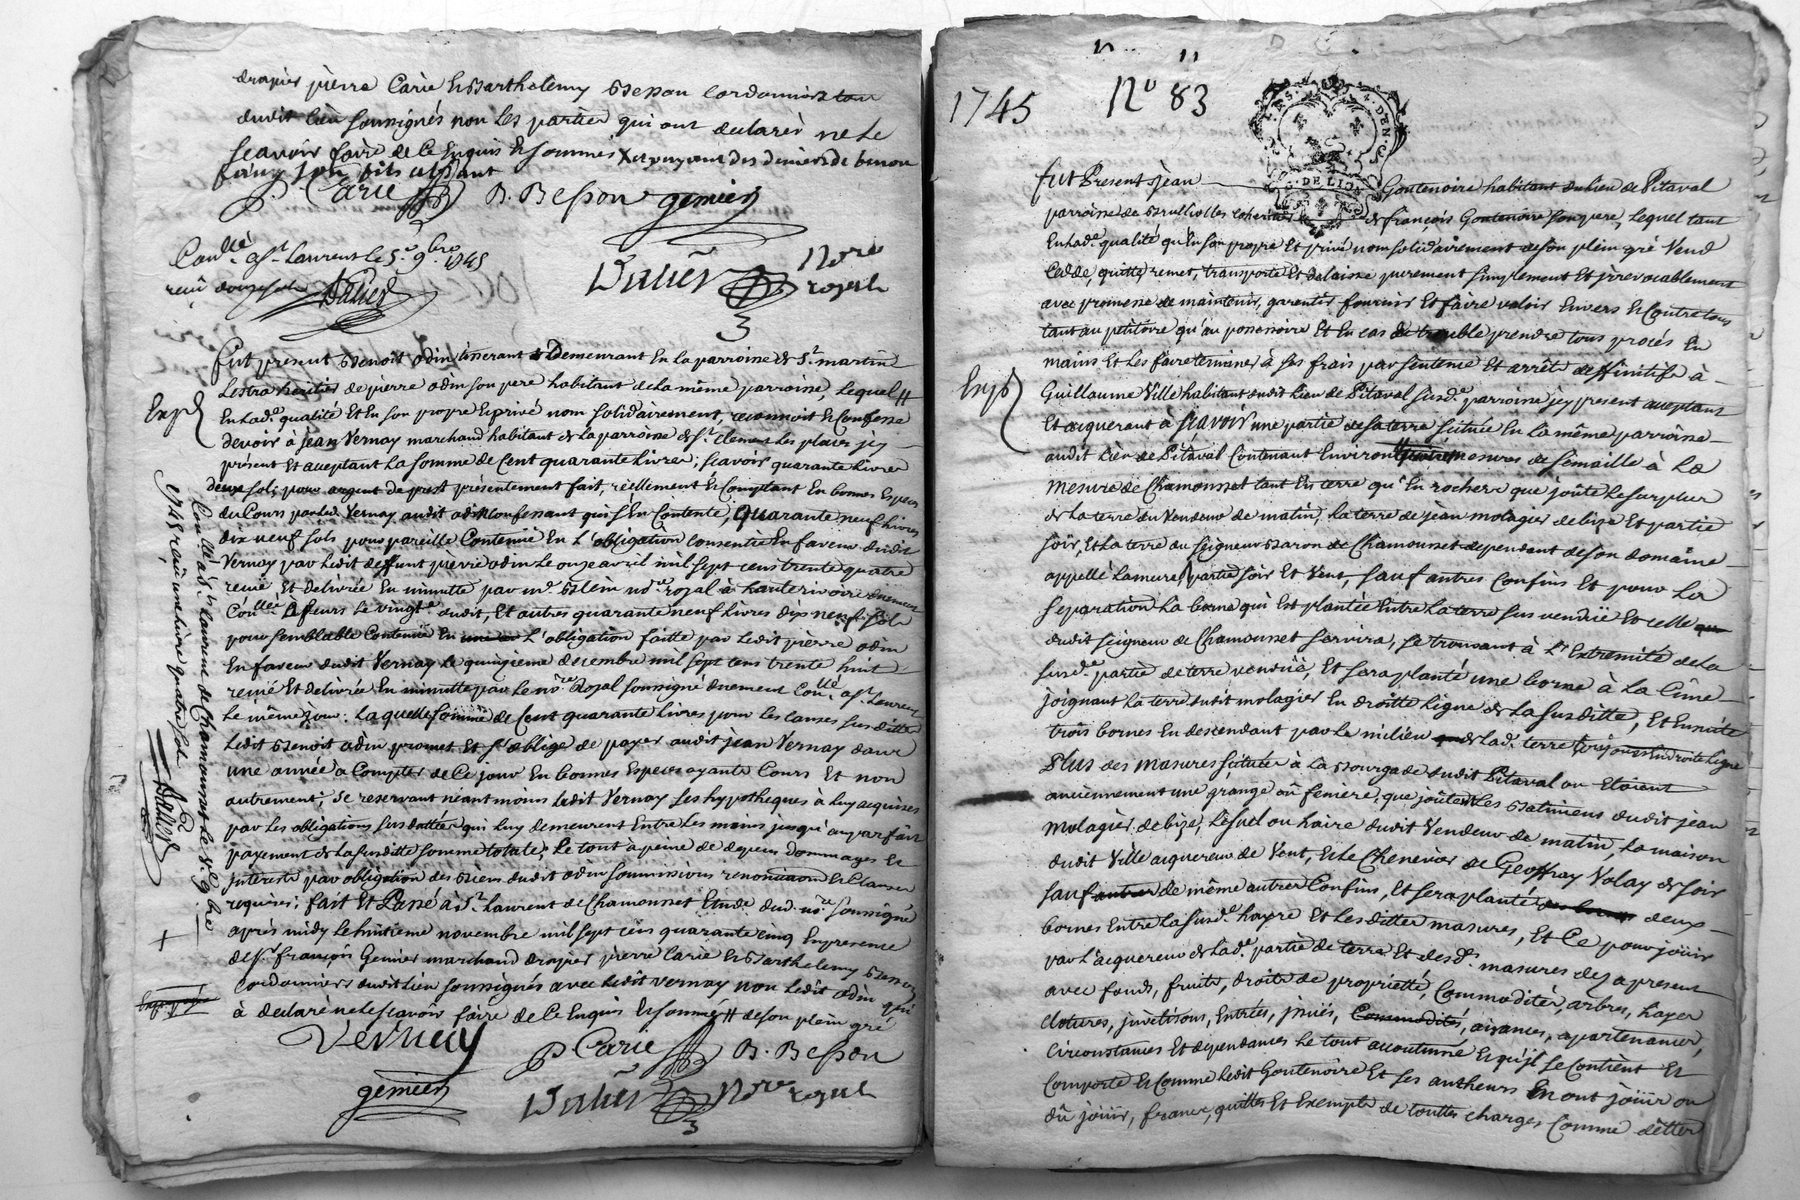 drapier pierre Carie & Barthelemy Besson cordonniers tous
dudit lieu soussignés non les parties qui ont declarés ne le
scavoir faire de ce Enquis & sommés
P. Carie B. Besson gemier
Conllé a St Laurent le 5e 9bre 1745
reçu douze sols Dalier
Dalier Nore royal
Fut present Benoit odin demeurant En la parroisse de St martin
Lestra heritier de pierre odin son pere habitant de la même parroisse, lequel #
En lade qualité et En son propre & privé nom solidairement, reconnoit & confesse
devoir a jean Vernay marchand habitant de la parroisse de St clement les places jcy
présent Et acceptant la somme de Cent quarante livres; scavoir quarante livres
deux sols pour argent de prest présentement fait, réellement & comptant En bonnes Especes
du Cours par led. Vernay audit odin confessant qui s'En contente, quarante neuf livres
dix neuf sols pour pareille Contenüe En l'obligation consentie En faveur dudit
Vernay par ledit deffunt pierre odin le onze avril mil sept cens trente quatre
reçüe et delivrée En minutte par me nore royal à hauterivoire duement
Conllée a feurs le vingte dudit, Et autres quarante neuf livres dix neuf sols
pour semblable Contenüe En l'obligation faitte par ledit pierre odin
En faveur dudit Vernay le quinzieme decembre mil sept cens trente huit
reçüe Et delivrée En minutte par le nore Royal soussigné duement Conllé a St Laurent
le même jour. laquelle somme de Cent quarante livres pour les causes susdittes
ledit Benoit odin promet Et s'oblige de payer audit jean Vernay dans
une année a compter de ce jour En bonnes Especes ayants Cours Et non
autrement, se reservant néantmoins ledit Vernay ses hypotheques à luy acquises
par les obligations susdattées qui luy demeurent Entre les mains jusqu'au parfait
payement de la susditte somme totale, le tout a peine de depens dommages &
interests par obligation des Biens dudit odin soumissions renonciaon & Clauses
requises; fait Et Passé à St Laurent de Chamousset Etude dud. nore soussigné
après midy le huitieme novembre mil sept cens quarante cinq En presence
de Sr françois Gemier marchand drapier pierre Carie & Barthelemy Besson
Cordonniers dudit lieu soussignés avec ledit Vernay non ledit odin qui
à declaré ne le scavoir faire de Ce Enquis & sommé # de son plein gré
Vernay P. Carie B. Besson
gemier Dalier Nore royal
Expd
Conllé à St Laurent de Chamousset le 9bre
1745 reçu une livre quatre sols
Dalier
1745 No 83
G. DE LION
Fut Present jean Goutenoire habitant du lieu de Pitaval
parroisse de Brulliolles coheritier de françois Goutenoire son pere, lequel tant
En lade qualité qu'En son propre Et privé nom solidairement de son plein gré Vend
Cedde, quitte, remet, transporte Et delaisse purement simplement Et jrrevocablement
avec promesse de maintenir, garentir fournir Et faire valoir Envers & Contre tous
tant au pétitoire qu'au possessoire Et En cas de trouble prendre tous procés En
mains Et les faire terminer à ses frais par sentence Et arrêt deffinitifs à
Guillaume Ville habitant dudit lieu de Pitaval susde parroisse jcy present acceptant
Et acquerant à scavoir une partie de sa terre scituée En la même parroisse
audit lieu de Pitaval Contenant Environ mesures de semaille à la
mesure de Chamousset tant En terre qu'En rochers que joûte le surplus
de la terre du Vendeur de matin, la terre de jean molagier de bize Et partie
soir, Et la terre du Seigneur Baron de Chamousset dependant de son domaine
appellé Lamure, partie soir Et Vent, sauf autres Confins Et pour la
separation la borne qui Est plantée Entre la terre sus vendüe Et celle
dudit seigneur de Chamousset servira, se trouvant à l'Extremité de la
susde partie de terre vendüe, Et sera planté une borne à la Cime
joignant la terre dudit molagier En droitte ligne de la susditte, Et Ensuite
trois bornes En descendant par le milieu de lade terre toujours En droite ligne
Plus des masures scituées à la Bourgade dudit Pitaval ou Etoient
anciennement une grange où feniere, que joûtent les Batimens dudit jean
Molagier de bize, le suel ou haire dudit Vendeur de matin, la maison
dudit Ville acquereur de Vent, Et le Chenevier de Geoffray Volay de soir
sauf de même autres Confins, Et sera planté deux
bornes Entre la susde hayre Et les dittes masures, Et Ce pour joüir
par l'acquereur de lade partie de terre Et desdes masures dez a present
avec fonds, fruits, droits de proprietté, Commodités, arbres, hayes
Clotures, jnvêtisons, Entrées, jssües, aisances, apartenances,
Circonstances Et dependances le tout accoutumé & qu'jl se Contient Et
Comporte & Comme ledit Goutenoire Et ses autheurs En ont joüir ou
dû joüir, france, quitte Et Exempte de touttes charges Comme dettes
Expd